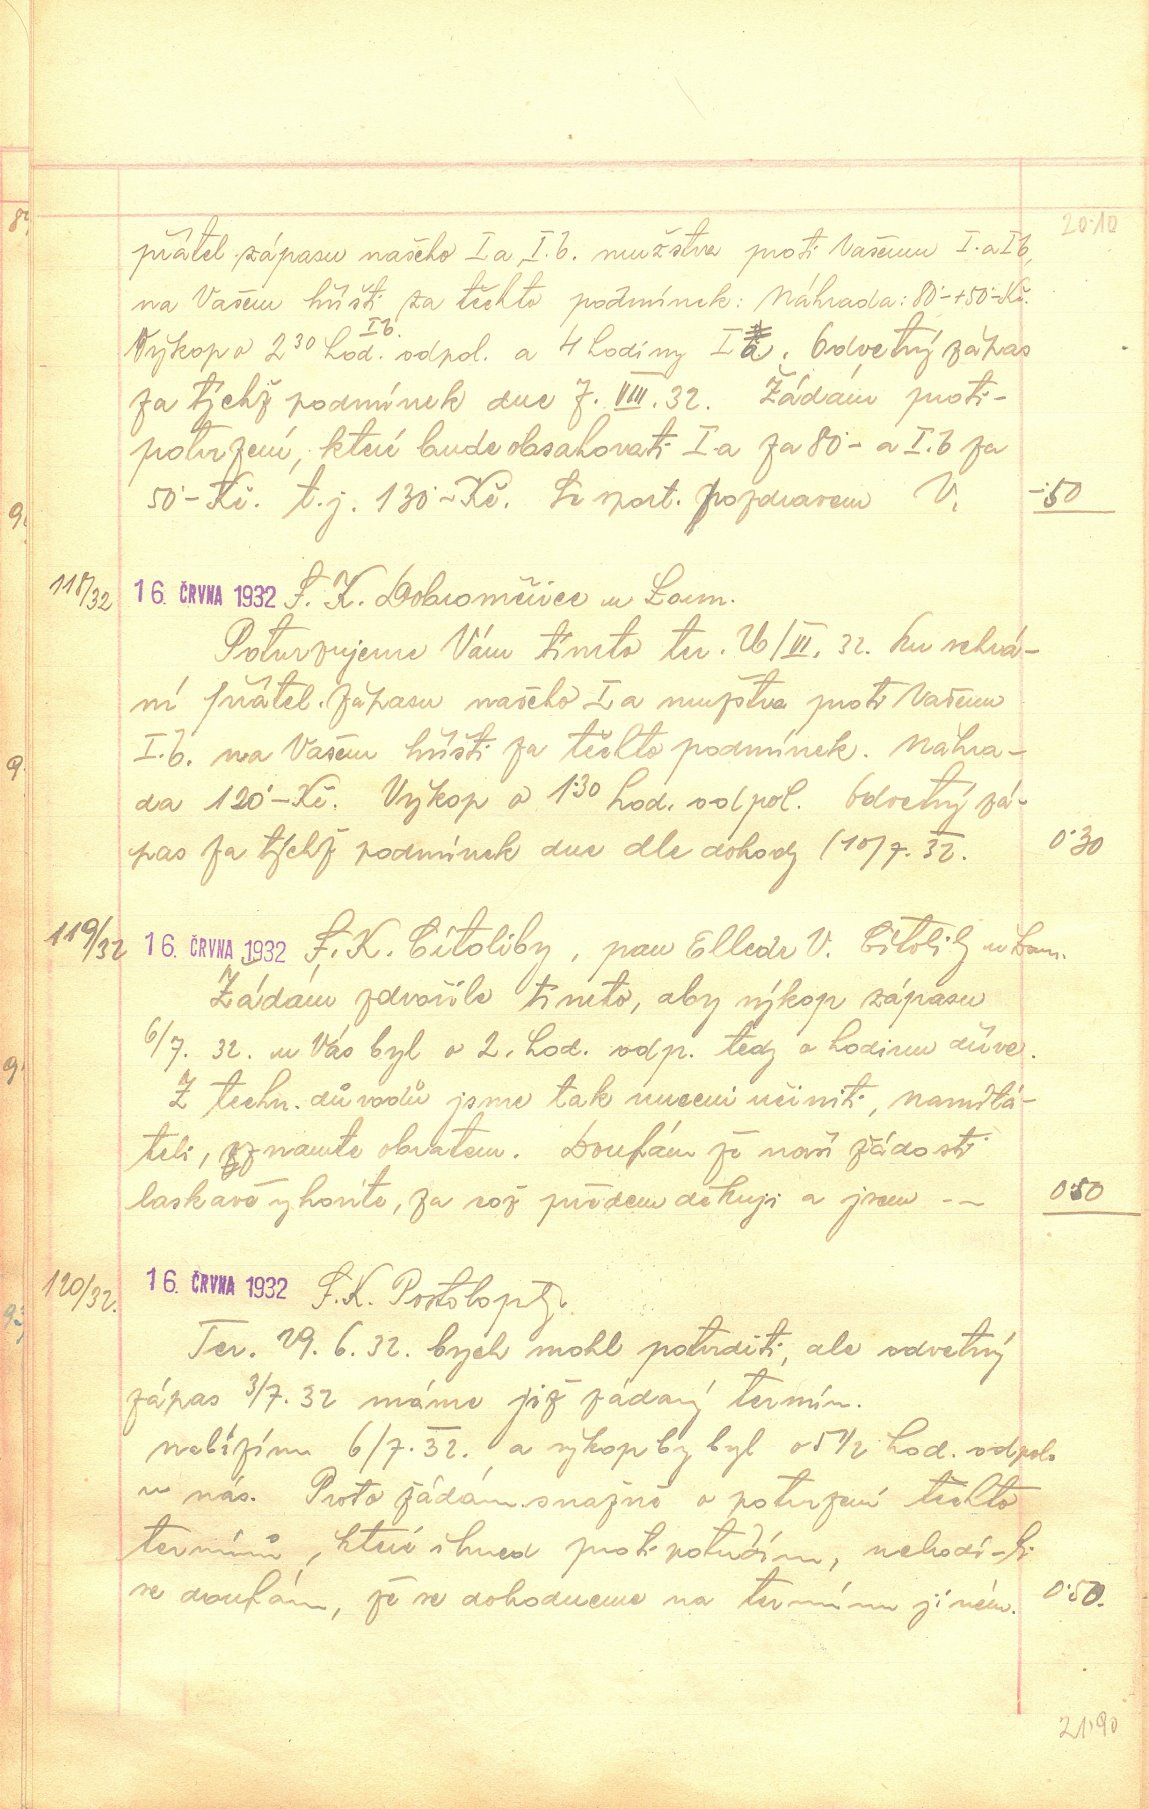 20·10
přátel. zápasu našeho I a, I. b. mužstva proti Vašemu I. a I b,
na Vašem hřišti za těchto podmínek: Náhrada: 80·– + 50·– Kč.
Výkop o 2³⁰ hod. I b. odpol. a 4 hodiny I a. Odvetný zápas
za týchž podmínek dne 7. VIII. 32. Žádám proti-
potvrzení, které bude obsahovati I. a za 80·– a I. b za
50·– Kč. t. j. 130·– Kč. Se sport. pozdravem V. –·50
118/32 16. ČRVNA 1932 S. K. Dobroměřice u Loun.
Potvrzujeme Vám tímto ter. 26/VI. 32. ku sehrá-
ní přátel. zápasu našeho I a mužstva proti Vašemu
I. b. na Vašem hřišti za těchto podmínek. Náhra-
da 120·– Kč. Výkop o 1·30 hod. odpol. Odvetný zá-
pas za týchž podmínek dne dle dohody (10/7. 32. 0·30
119/32 16. ČRVNA 1932 S. K. Cítoliby, pan Elleder V. Cítoliby u Loun.
Žádám zdvořile tímto, aby výkop zápasu
6/7. 32. u Vás byl o 2. hod. odp. tedy o hodinu dříve.
Z techn. důvodů jsme tak nuceni učiniti, namítá-
teli, seznamte obratem. Doufám že naší žádosti
laskavě vyhovíte, za což předem děkuji a jsem – – 0·50
120/32. 16. ČRVNA 1932 S. K. Postoloprty.
Ter. 29. 6. 32. bych mohl potvrditi, ale odvetný
zápas 3/7. 32 máme již zadaný termín.
nabízím 6/7. 32. a výkop by byl o 5 1/2 hod. odpol.
u nás. Proto žádám snažně o potvrzení těchto
termínů, které ihned protipotvrdím, nehodí-li
se doufám, že se dohodneme na termínu jiném. 0·50.
21·90